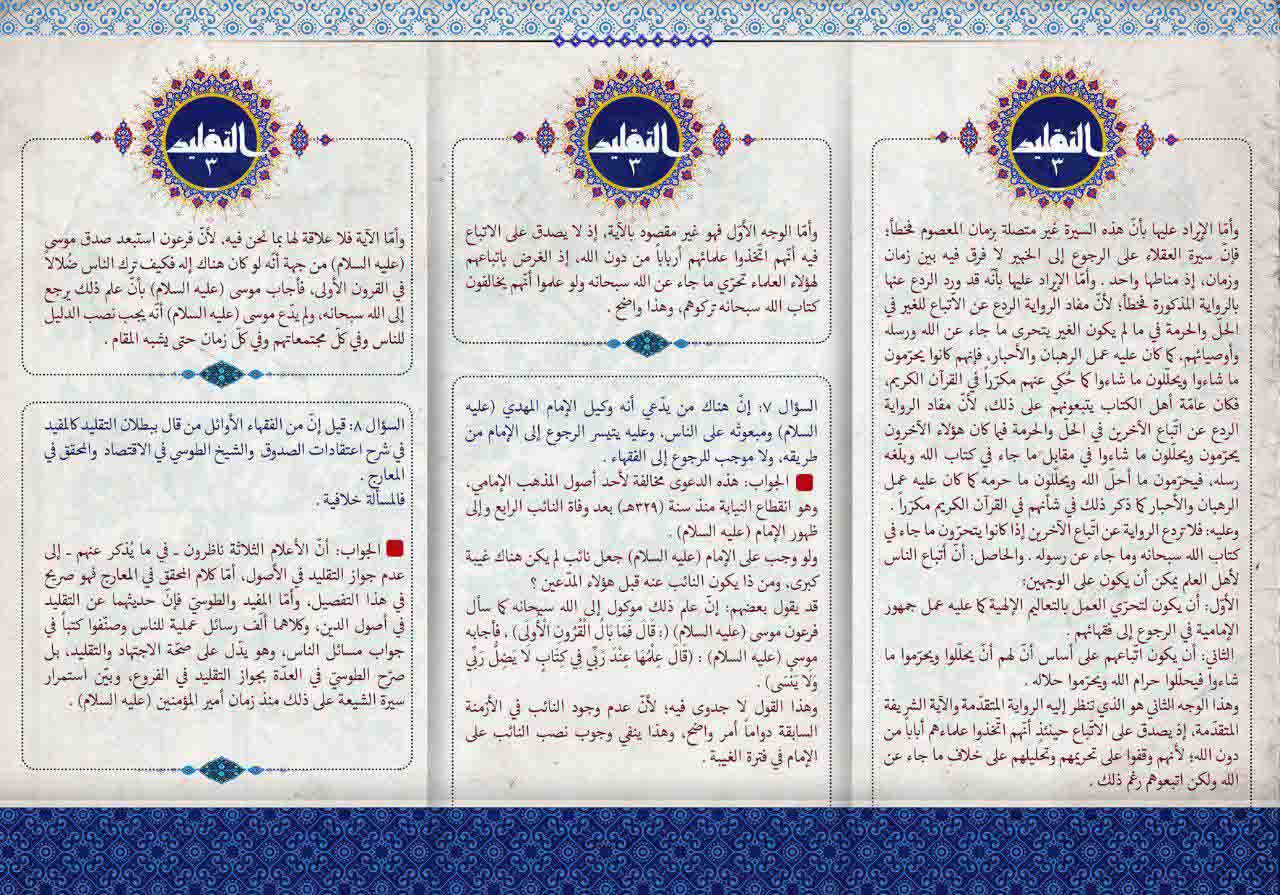 التقليد
٣
وأمّا الإيراد عليها بأنّ هذه السيرة غير متصلة بزمان المعصوم فخطأ؛
فإنّ سيرة العقلاء على الرجوع إلى الخبير لا فرق فيه بين زمان
وزمان، إذ مناطها واحد . وأمّا الإيراد عليها بأنّه قد ورد الردع عنها
بالرواية المذكورة فخطأ؛ لأنّ مفاد الرواية الردع عن الأتباع للغير في
الحلّ والحرمة في ما لم يكون الغير يتحرى ما جاء عن الله ورسله
وأوصيائهم، كما كان عليه عمل الرهبان والأحبار، فإنهم كانوا يحرّمون
ما شاءوا ويحلّلون ما شاءوا كما حُكي عنهم مكرّراً في القرآن الكريم،
فكان عامّة أهل الكتاب يتبعونهم على ذلك، لأنّ مفاد الرواية
الردع عن اتّباع الآخرين في الحلّ والحرمة فيما كان هؤلاء الآخرون
يحرّمون ويحلّلون ما شاءوا في مقابل ما جاء في كتاب الله وبلغه
رسله، فيحرّمون ما أحلّ الله ويحلّلون ما حرمه كما كان عليه عمل
الرهبان والأحبار كما ذكر ذلك في شأنهم في القرآن الكريم مكرّراً .
وعليه: فلا تردع الرواية عن اتّباع الآخرين إذا كانوا يتحرّون ما جاء في
كتاب الله سبحانه وما جاء عن رسوله . والحاصل: أنّ أتباع الناس
لأهل العلم يمكن أن يكون على الوجهين:
الأوّل: أن يكون لتحرّي العمل بالتعاليم الإلهية كما عليه عمل جمهور
الإمامية في الرجوع إلى فقهائهم .
الثاني: أن يكون اتّباعهم على أساس أنّ لهم أنْ يحلّلوا ويحرّموا ما
شاءوا فيحللوا حرام الله ويحرّموا حلاله .
وهذا الوجه الثاني هو الذي تنظر إليه الرواية المتقدّمة والآية الشريفة
المتقدّمة، إذ يصدق على الاتّباع حينئذٍ أنّهم اتّخذوا علماءهم أباباً من
دون الله؛ لأنهم وقفوا على تحريمهم وتحليلهم على خلاف ما جاء عن
الله ولكن اتبعوهم رغم ذلك .
التقليد
٣
وأمّا الوجه الأوّل فهو غير مقصود بالآية، إذ لا يصدق على الاتباع
فيه أنّهم اتّخذوا علمائهم أرباباً من دون الله، إذ الغرض باتباعهم
لهؤلاء العلماء تحرّي ما جاء عن الله سبحانه ولو علموا أنّهم يخالفون
كتاب الله سبحانه تركوهم، وهذا واضح .
السؤال ٧: إنّ هناك من يدّعي أنه وكيل الإمام المهدي (عليه
السلام) ومبعوثه على الناس، وعليه يتيسر الرجوع إلى الإمام من
طريقه، ولا موجب للرجوع إلى الفقهاء .
الجواب: هذه الدعوى مخالفة لأحد أصول المذهب الإمامي،
وهو انقطاع النيابة منذ سنة (٣٢٩هـ) بعد وفاة النائب الرابع وإلى
ظهور الإمام (عليه السلام) .
ولو وجب على الإمام (عليه السلام) جعل نائب لم يكن هناك غيبة
كبرى، ومن ذا يكون النائب عنه قبل هؤلاء المدّعين ؟
قد يقول بعضهم: إنّ علم ذلك موكول إلى الله سبحانه كما سأل
فرعون موسى (عليه السلام) (: قَالَ فَمَا بَالُ الْقُرُونِ الْأُولَى) ، فأجابه
موسى (عليه السلام) : (قَالَ عِلْمُهَا عِنْدَ رَبِّي فِي كِتَابٍ لَا يَضِلُّ رَبِّي
وَلَا يَنْسَى) .
وهذا القول لا جدوى فيه؛ لأنّ عدم وجود النائب في الأزمنة
السابقة دواماً أمر واضح، وهذا ينفي وجوب نصب النائب على
الإمام في فترة الغيبة .
التقليد
٣
وأمّا الآية فلا علاقة لها بما نحن فيه، لأنّ فرعون استبعد صدق موسى
(عليه السلام) من جهة أنّه لو كان هناك إله فكيف ترك الناس ضُلالا
في القرون الأولى، فأجاب موسى (عليه السلام) بأنّ علم ذلك يرجع
إلى الله سبحانه، ولم يدّع موسى (عليه السلام) أنّه يجب نصب الدليل
للناس وفي كلّ مجتمعاتهم وفي كلّ زمان حتى يشبه المقام .
السؤال ٨: قيل إنّ من الفقهاء الأوائل من قال ببطلان التقليد كالمفيد
في شرح اعتقادات الصدوق والشيخ الطوسي في الاقتصاد والمحقق في
المعارج .
فالمسألة خلافية .
الجواب: أنّ الأعلام الثلاثة ناظرون ـ في ما يُذكر عنهم ـ إلى
عدم جواز التقليد في الأصول، أمّا كلام المحقق في المعارج فهو صريح
في هذا التفصيل، وأمّا المفيد والطوسيّ فإنّ حديثهما عن التقليد
في أصول الدين، وكلاهما ألّف رسائل عملية للناس وصنّفوا كتباً في
جواب مسائل الناس، وهو يدّل على صحّة الاجتهاد والتقليد، بل
صرّح الطوسيّ في العدّة بجواز التقليد في الفروع، وبيّن استمرار
سيرة الشيعة على ذلك منذ زمان أمير المؤمنين (عليه السلام) .